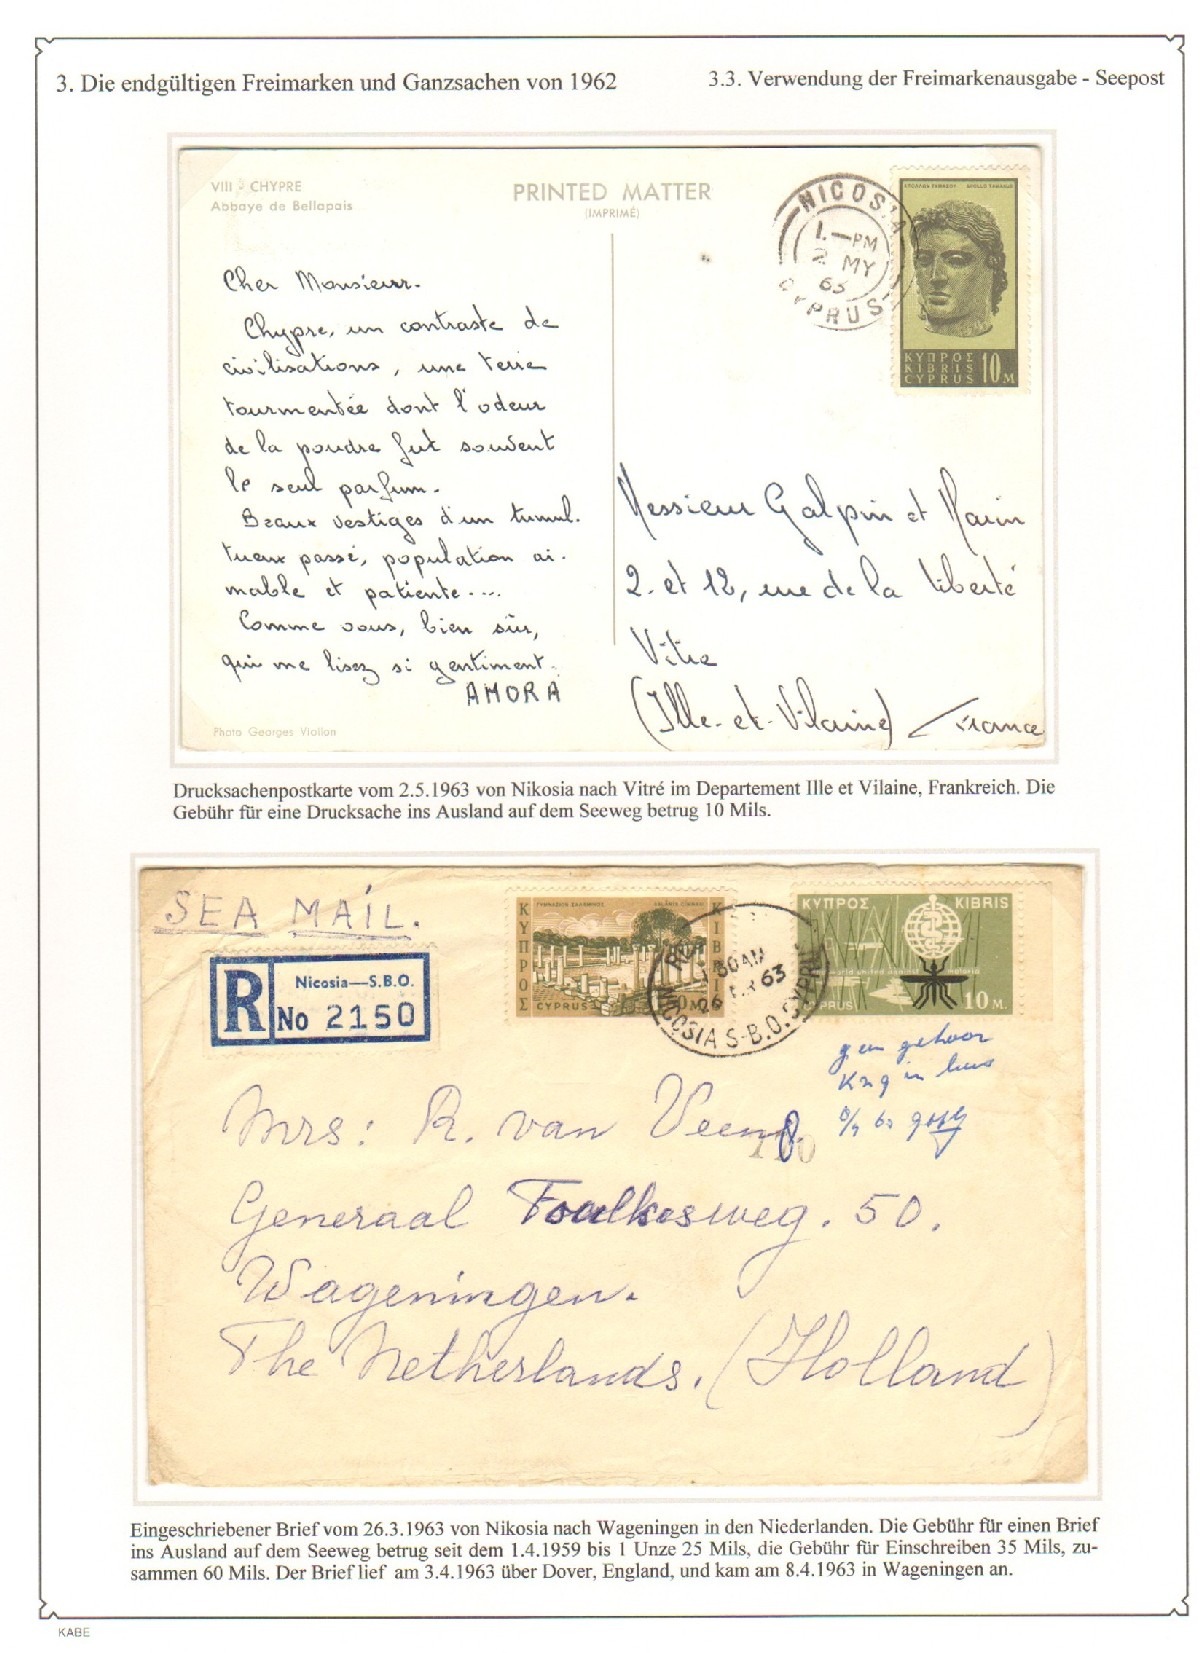 3. Die endgültigen Freimarken und Ganzsachen von 1962
3.3. Verwendung der Freimarkenausgabe - Seepost
VIII - CHYPRE
Abbaye de Bellapais
PRINTED MATTER
(IMPRIMÉ)
NICOSIA
1 - PM
2 MY
63
CYPRUS
ΚΥΠΡΟΣ
KIBRIS
CYPRUS 10 M
Cher Monsieur.
Chypre, un contraste de
civilisations, une terre
tourmentée dont l'odeur
de la poudre fut souvent
le seul parfum.
Beaux vestiges d'un tumul.
tueux passé, population ai.
mable et patiente....
Comme vous, bien sûr,
qui me lisez si gentiment.
AMORA
Photo Georges Viollon
Messieurs Galpin et Marin
2. et 12, rue de la Liberté
Vitre
(Ille-et-Vilaine) France
Drucksachenpostkarte vom 2.5.1963 von Nikosia nach Vitré im Departement Ille et Vilaine, Frankreich. Die
Gebühr für eine Drucksache ins Ausland auf dem Seeweg betrug 10 Mils.
SEA MAIL.
R
Nicosia—S.B.O.
No 2150
ΚΥΠΡΟΣ
KIBRIS
CYPRUS
ΚΥΠΡΟΣ KIBRIS
CYPRUS 10 M.
30 AM
26 63
NICOSIA S-B.O. CYPRUS
geen gehoor
Mrs: R. van Veen
Generaal Foulkesweg. 50.
Wageningen.
The Netherlands. (Holland)
Eingeschriebener Brief vom 26.3.1963 von Nikosia nach Wageningen in den Niederlanden. Die Gebühr für einen Brief
ins Ausland auf dem Seeweg betrug seit dem 1.4.1959 bis 1 Unze 25 Mils, die Gebühr für Einschreiben 35 Mils, zu-
sammen 60 Mils. Der Brief lief am 3.4.1963 über Dover, England, und kam am 8.4.1963 in Wageningen an.
KABE